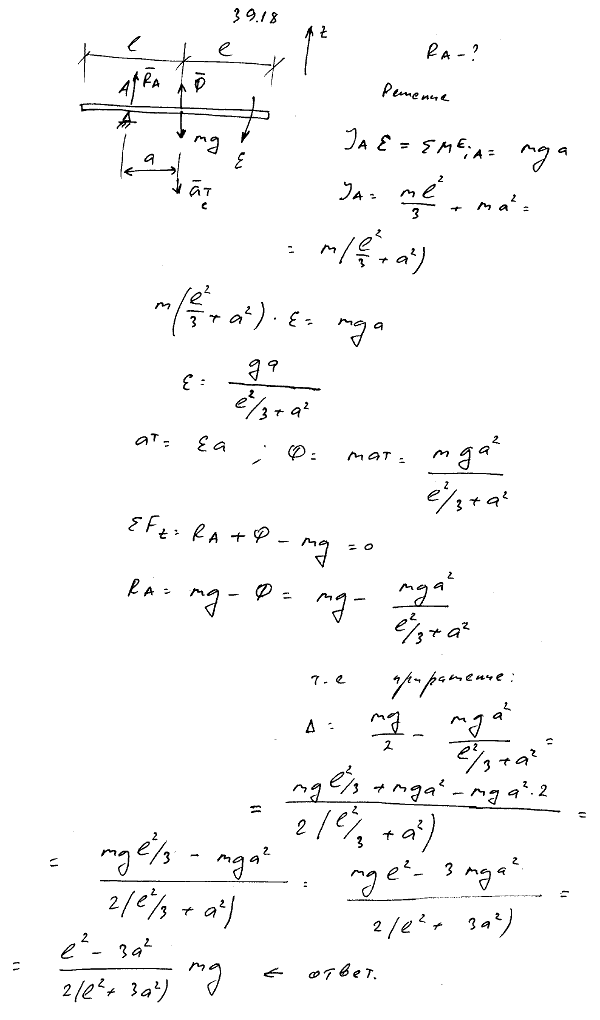 39.18
l l z
A R̄A Φ̄
mg ε
a
ā τ c
RA - ?
Решение
JA ε = ΣM E i A = mga
JA = ml²/3 + ma² =
= m(l²/3 + a²)
m(l²/3 + a²) · ε = mga
ε = ga / (l²/3 + a²)
aτ = εa ; Φ = maτ = mga² / (l²/3 + a²)
ΣFz = RA + Φ - mg = 0
RA = mg - Φ = mg - mga² / (l²/3 + a²)
т.е приращение:
Δ = mg/2 - mga² / (l²/3 + a²) =
= (mg l²/3 + mga² - mga²·2) / 2(l²/3 + a²) =
= (mg l²/3 - mga²) / 2(l²/3 + a²) = (mgl² - 3mga²) / 2(l² + 3a²) =
= (l² - 3a²) / 2(l² + 3a²) mg ← ответ.